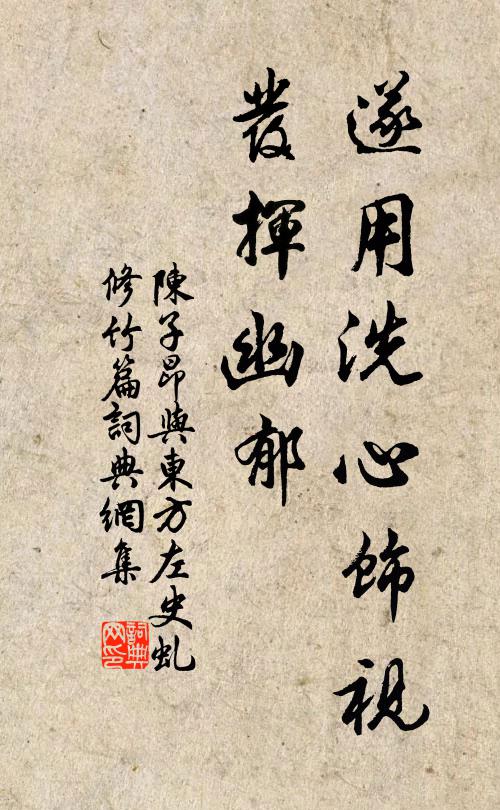 遂用洗心飾視
發揮幽郁
陳子昂與東方左史虬
修竹篇詞典網集
詞典
网印